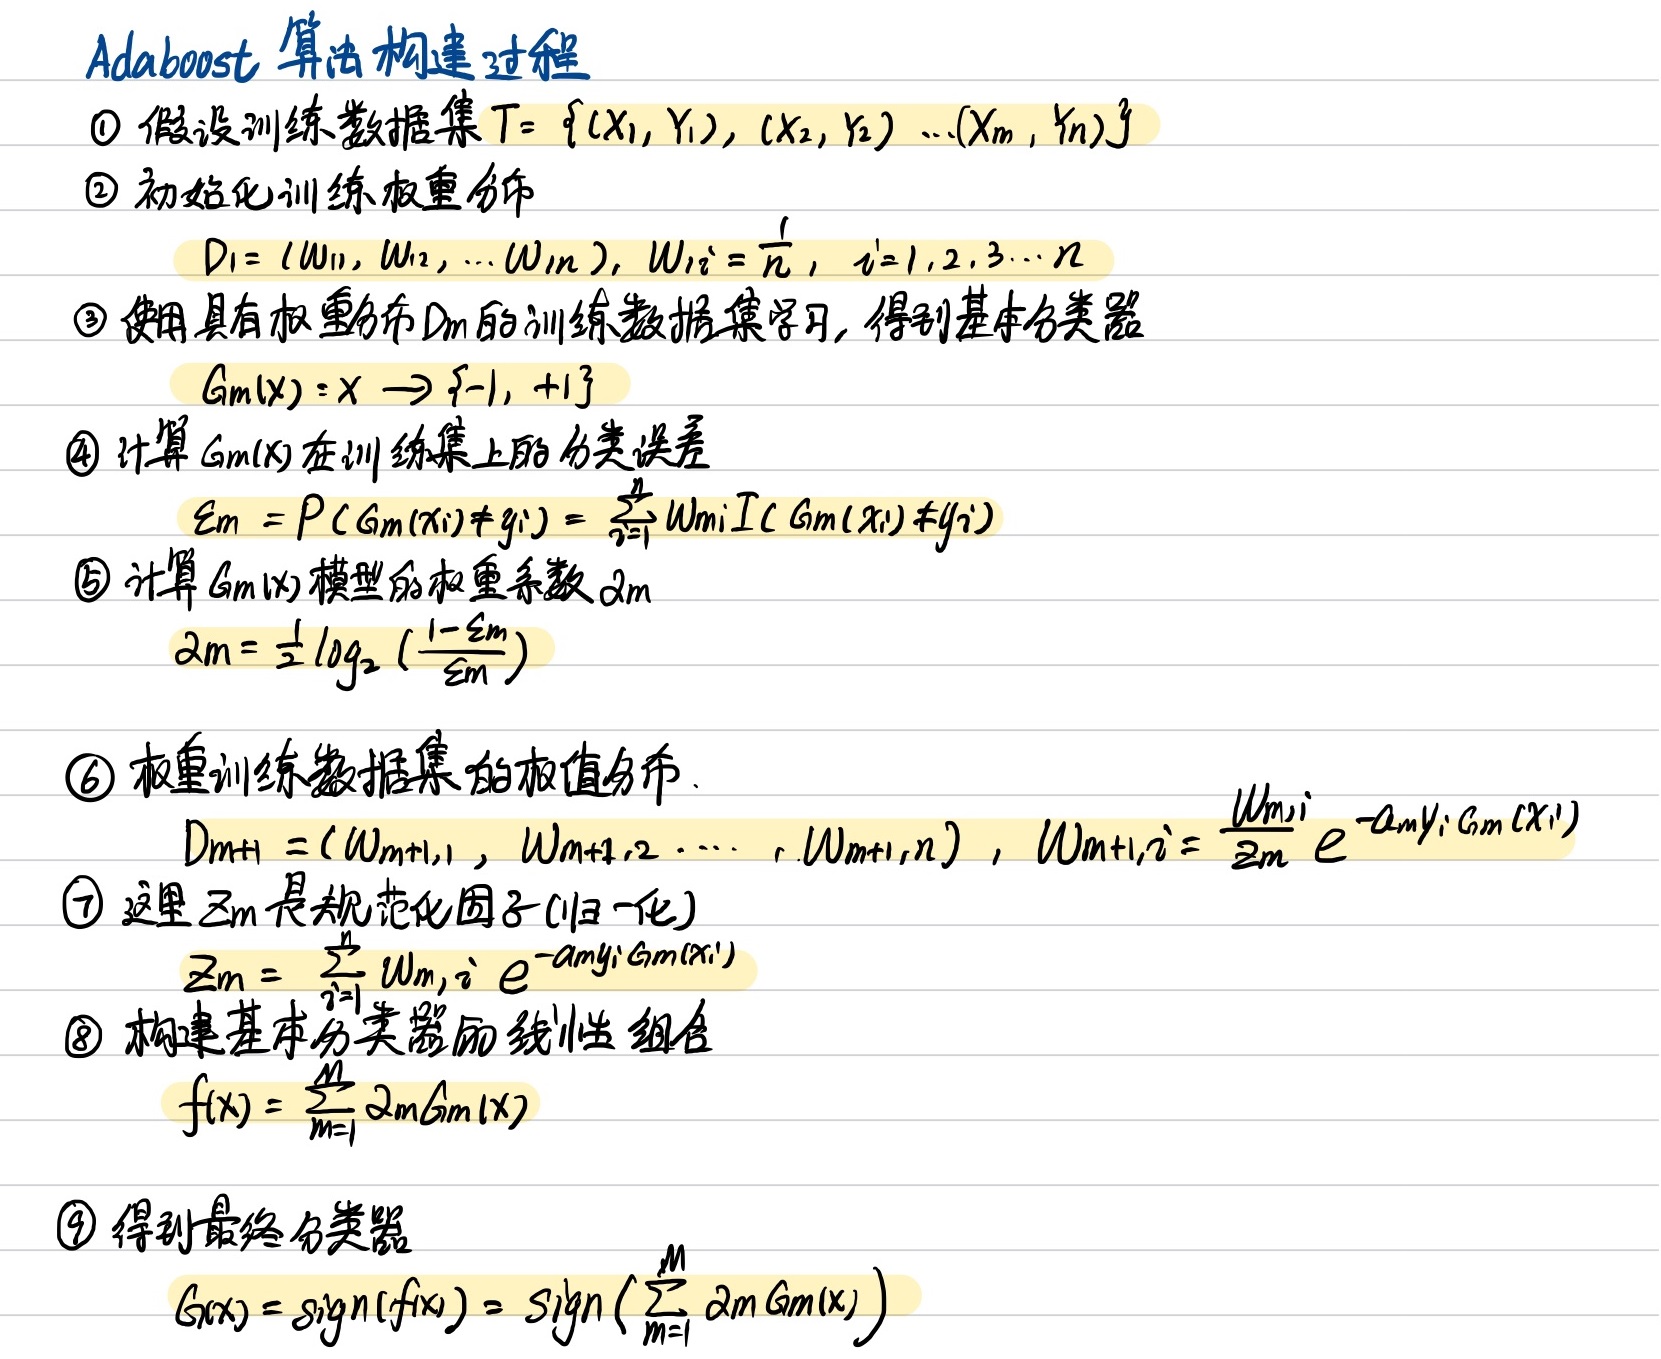 Adaboost 算法构建过程
① 假设训练数据集 T= {(X1, Y1), (X2, Y2) ...(Xm, Yn)}
② 初始化训练权重分布
D1= (W11, W12, ...W1n), W1i = 1/n, i=1,2,3...n
③ 使用具有权重分布Dm的训练数据集学习, 得到基本分类器
Gm(x) : x → {-1, +1}
④ 计算 Gm(x) 在训练集上的分类误差
εm = P(Gm(xi)≠yi) = Σ_{i=1}^{n} Wmi I(Gm(xi)≠yi)
⑤ 计算 Gm(x) 模型的权重系数 αm
αm = 1/2 log2 ((1-εm)/εm)
⑥ 权重训练数据集的权值分布.
Dm+1 = (Wm+1,1, Wm+1,2 ...., Wm+1,n), Wm+1,i = Wm,i/Zm e^{-αm yi Gm(xi)}
⑦ 这里 Zm 是规范化因子(归一化)
Zm = Σ_{i=1}^{n} Wm,i e^{-αm yi Gm(xi)}
⑧ 构建基本分类器的线性组合
f(x) = Σ_{m=1}^{M} αm Gm(x)
⑨ 得到最终分类器
G(x) = sign(f(x)) = sign(Σ_{m=1}^{M} αm Gm(x))